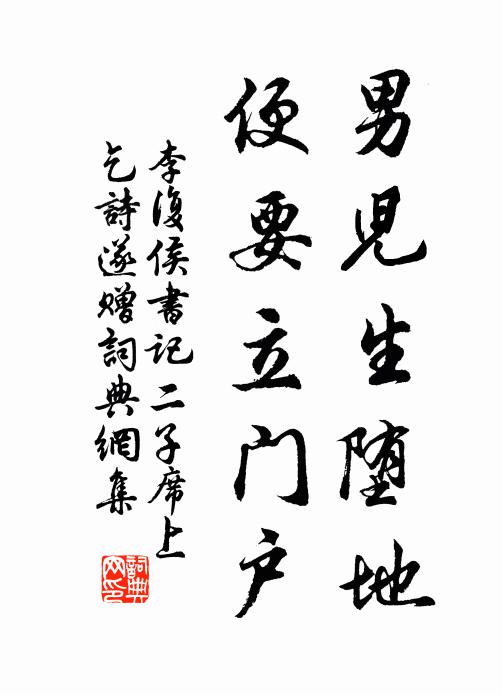 男児生堕地
便要立门户
李復侯書記二子席上
乞詩遂赠詞典網集
詞典网印